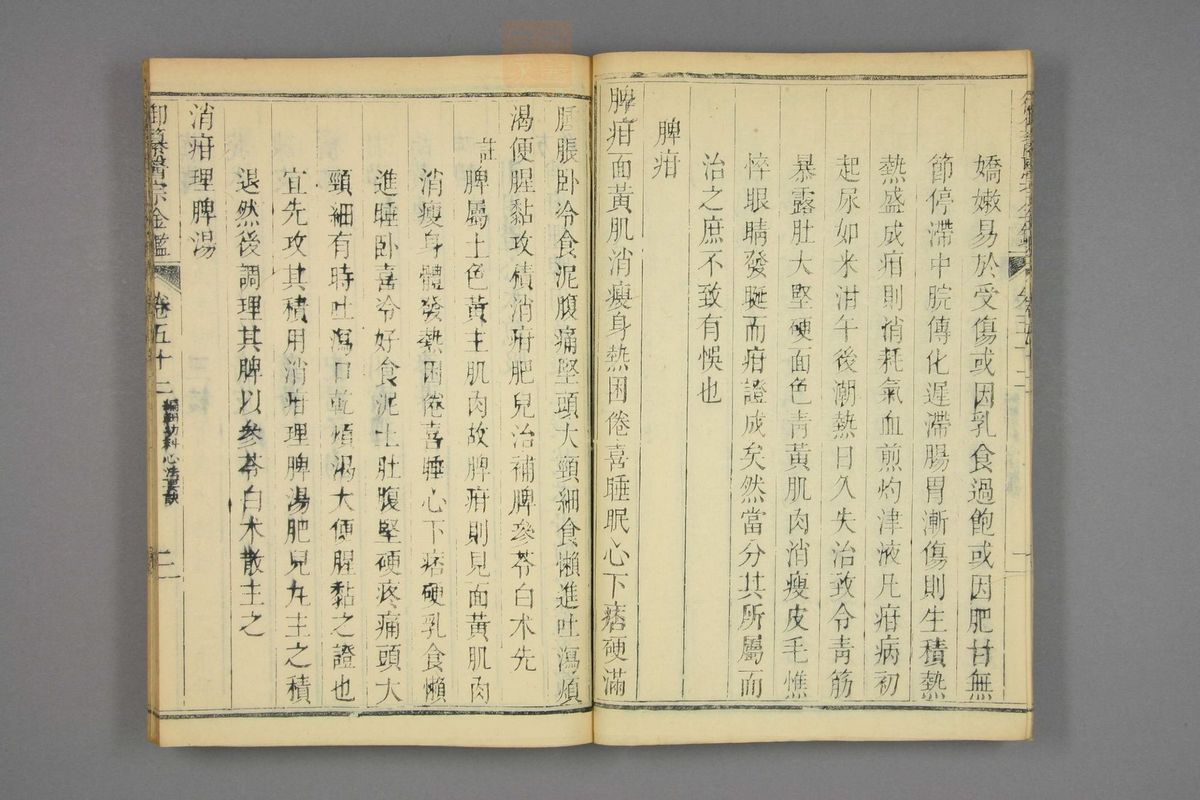 嬌嫩易於受傷或因乳食過飽或因肥甘無
節停滯中脘傳化遲滯腸胃漸傷則生積熱
熱盛成疳則消耗氣血煎灼津液凡疳病初
起尿如米泔午後潮熱日久失治致令青筋
暴露肚大堅硬面色青黃肌肉消瘦皮毛憔
悴眼睛發𥆧而疳證成矣然當分其所屬而
治之庶不致有悞也
脾疳
脾疳面黃肌消瘦身熱困倦喜睡眠心下痞硬滿
腫脹卧冷食泥腹痛堅頭大頸細食懶進吐瀉煩
渴便腥黏攻積消疳肥兒治補脾參苓白朮先
註脾屬土色黃主肌肉故脾疳則見面黃肌肉
消瘦身體發熱困倦喜睡心下痞硬乳食懶
進睡卧喜冷好食泥土肚腹堅硬疼痛頭大
頸細有時吐瀉口乾煩渴大便腥黏之證也
宜先攻其積用消疳理脾湯肥兒丸主之積
退然後調理其脾以參苓白朮散主之
消疳理脾湯
御纂醫宗金鑑 卷五十二 編輯幼科心法要訣 二